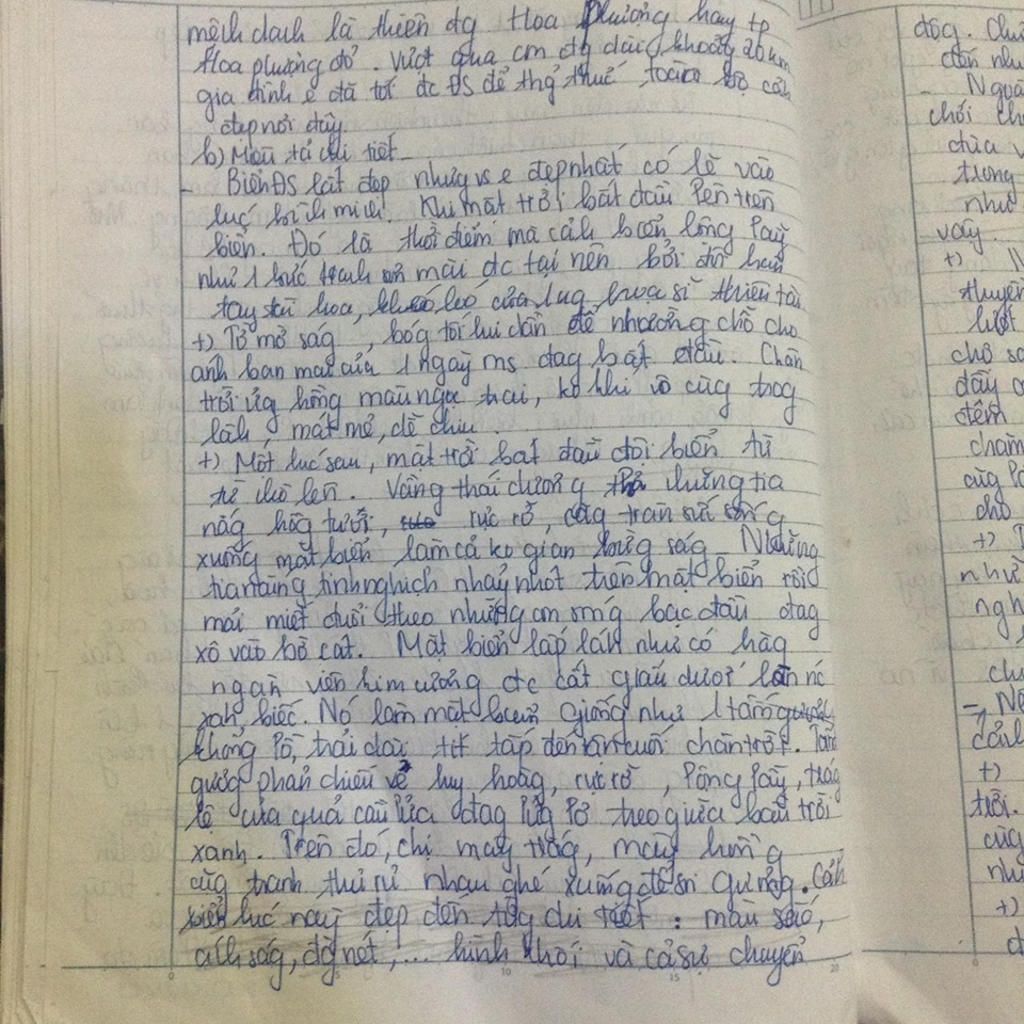 mệnh danh là thiên đg Hoa phượng hay tp
Hoa phượng đỏ. Vượt qua cm đg dài khoảg 20km
gia đình e đã tới đc ĐS để thg thức toàn bộ cảh
đẹp nơi đây.
b) Miêu tả chi tiết
- Biển ĐS rất đẹp nhưg vs e đẹp nhất có lẽ vào
lúc bìh mih. Khi mặt trời bắt đầu lên trên
biển. Đó là thời điểm mà cảh biển lộng lẫy
như 1 bức trah mài đc tại nên bởi đôi bàn
tay tài hoa, khéo léo của 1 ng họa sĩ thiên tài
+) Tờ mờ ság, bóg tối lui dần để nhường chỗ cho
ánh ban mai của 1 ngày ms đag bắt đầu. Chân
trời ửg hồng màu ngọc trai, ko khí vô cùg trog
làh, mát mẻ, dễ chịu
+) Một lúc sau, mặt trời bắt đầu đội biển từ
từ nhô lên. Vầng thái dương thả những tia
nắg hồg tươi, rực rỡ, căg tràn sức sốg
xuống mặt biển làm cả ko gian bừg ság. Những
tia nắng tinh nghịch nhảy nhót trên mặt biển rồi
mải miết đuổi theo những con sóng bạc đầu đag
xô vào bờ cát. Mặt biển lấp láh như có hàg
ngàn viên kim cương đc cất giấu dưới làn nc
xah biếc. Nó làm mặt biển giống như 1 tấm gương
khổng lồ, trải dài tít tắp đến tận cuối chân trời. Tấm
gươg phản chiếu vẻ huy hoàg, rực rỡ, lộng lẫy, trág
lệ của quả cầu lửa đag lửg lơ theo giữa bầu trời
xanh. Trên đó, chị mây trắg, mây hồng
cùg tranh thủ rủ nhau ghé xuống để soi gươg. Cảh
biển lúc này đẹp đến từg chi tiết: màu sắc,
áh ság, đg nét,... hình khối và cả sự chuyển
độg. Chú
đến như
- Ngoà
chơi ch
chùa v
trong
như
vậy.
+) N
thuyền
lướt
chở sa
đầy c
đêm
chàm
cùg lo
cho
+) T
như
ngh
chu
→ Nế
cảh
+)
trời.
cùg
như
+)
đ